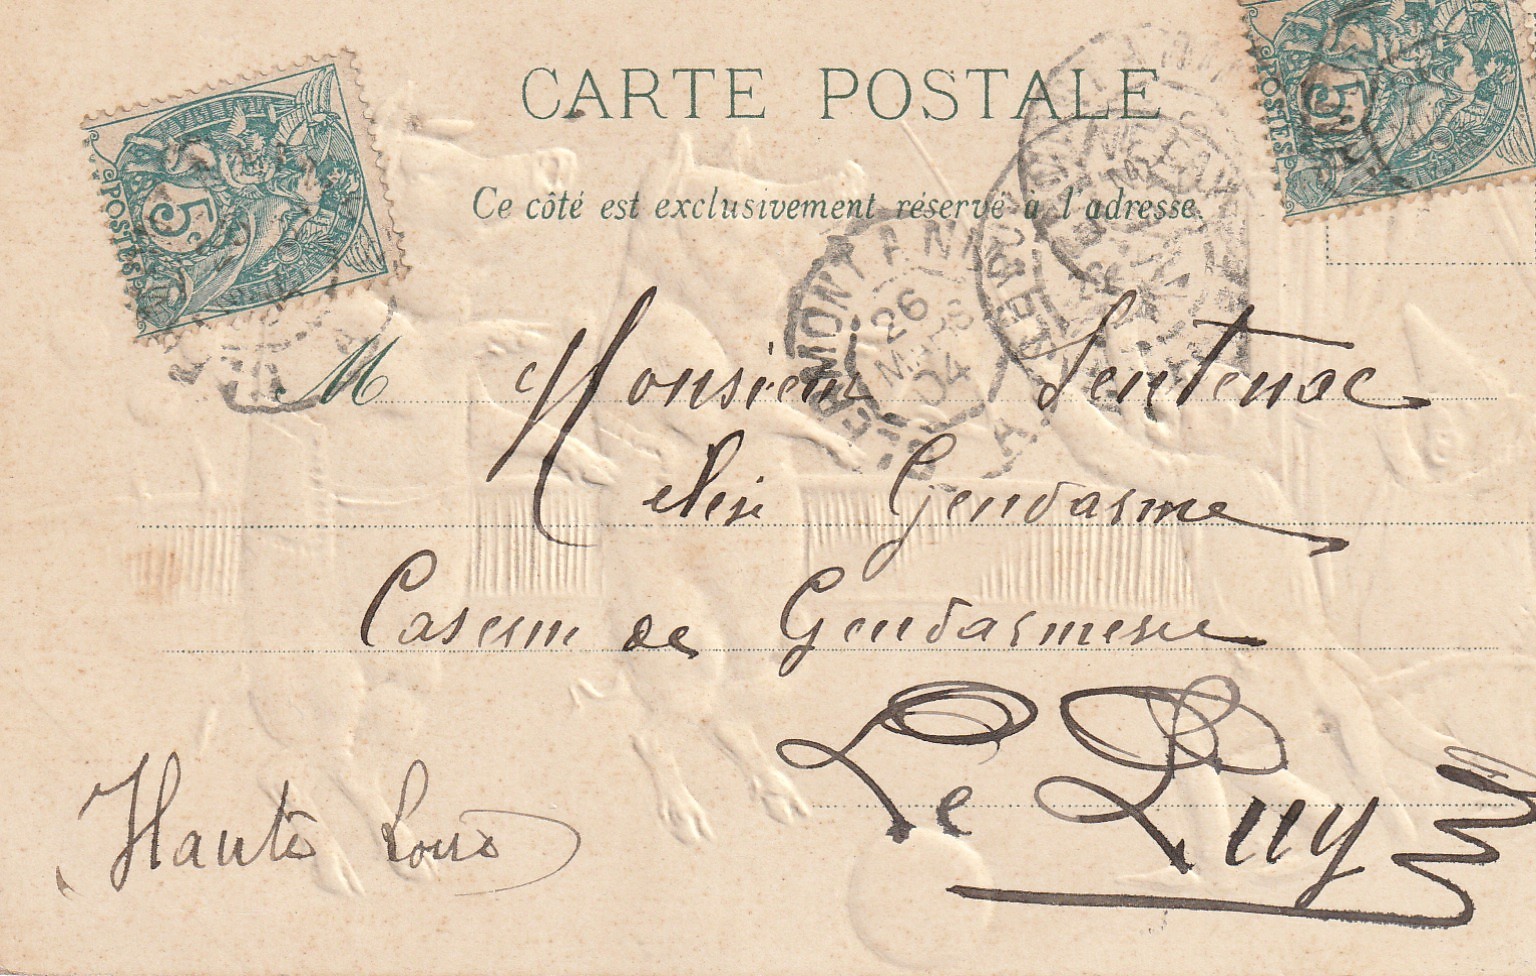 CARTE POSTALE
Ce côté est exclusivement réservé à l'adresse.
POSTES 5c
POSTES 5c
26
MARS
04
M Monsieur Sentenac
Gendarme
Caserne de Gendarmerie
Le Puy
Haute Loire